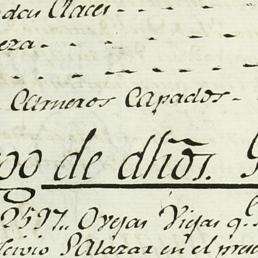 das Claces - - -
eza - - - - -
- - - - - -
Carneros Capados -
go de dhõs.
2597.. Ovejas Viejas q.
Salazar en el pres